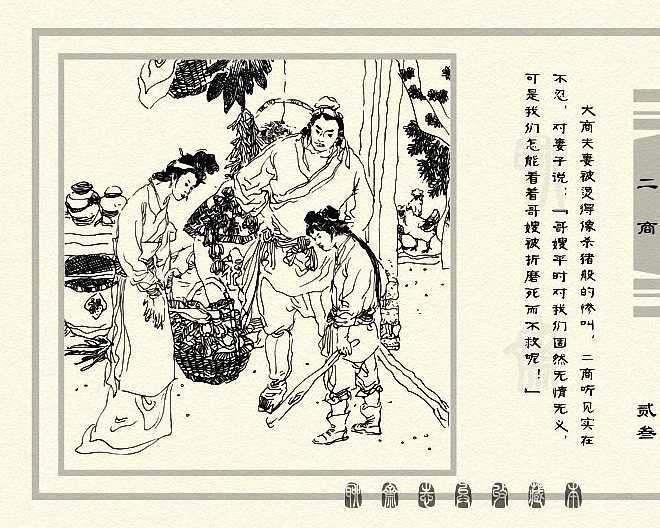 大商夫妻被烫得像杀猪般的惨叫，二商听见实在
不忍，对妻子说：「哥嫂平时对我们固然无情无义，
可是我们怎能看着哥嫂被折磨死而不救呢！」
二商
贰叁